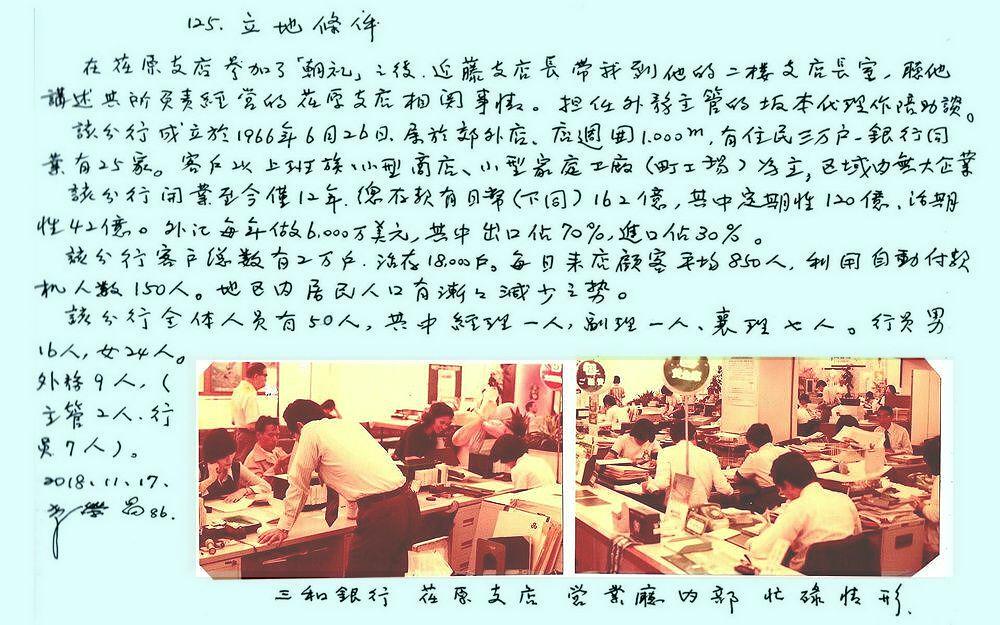 125. 立地條件
在荏原支店參加了「朝礼」之後、近藤支店長帶我到他的二樓支店長室，聽他
講述其所负責經营的荏原支店相関事情。担任外務主管的坂本代理作陪助談。
該分行成立於1966年6月26日、属於郊外店、店週囲1.000m，有住民三万户-銀行同
業有25家。客户以上班族、小型商店、小型家庭工廠（町工場）为主，区域内無大企業
該分行開業至今僅12年、總存款有日幣（下同）162億，其中定期性120億、活期
性42億。外汇每年做6.000万美元，其中出口佔70%，進口佔30%。
該分行客户总数有2万户、活存18.000户。每日来店顧客平均850人，利用自動付款
机人数150人。地区内居民人口有漸々減少之勢。
該分行全体人员有50人，其中經理一人，副理一人、襄理七人。行员男
16人，女24人。
外務9人，（
主管2人、行
员7人）。
2018.11.17.
學昌86.
三和銀行 荏原支店 营業廳内部 忙碌情形.